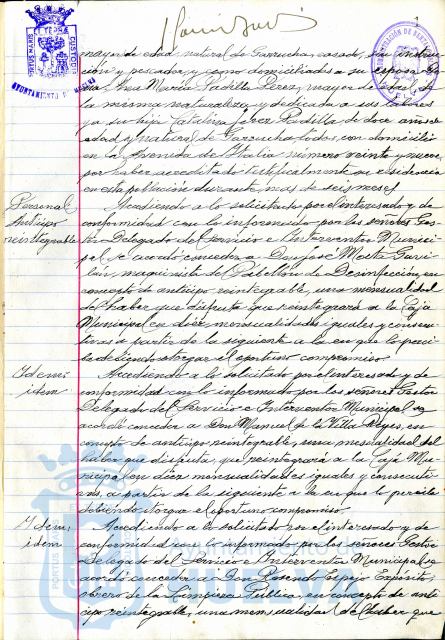 mayor de edad, natural de Garrucha, casado, de instruc-
ción y pescador, y como domiciliados a su esposa Do-
ña Ana María Padilla Perez, mayor de edad, de
la misma naturaleza y dedicada a sus labores
y a su hija Catalina Jerez Padilla de doce años de
edad y natural de Garrucha, todos, con domicilio
en la Avenida de Italia número veinte y nueve,
por haber acreditado testificalmente su residencia
en esta población durante más de seis meses.
Personal
Anticipo
reintegrable
Accediendo a lo solicitado por el interesado y de
conformidad con lo informado por los señores Ges-
tor Delegado del Servicio e Interventor Munici-
pal se acordó conceder a Don José Mesta
maquinista del Pabellón de Desinfección, en
concepto de anticipo reintegrable, una mensualidad
del haber que disfruta que reintegrará a la Caja
Municipal en diez mensualidades iguales y consecu-
tivas a partir de la siguiente a la en que lo perci-
ba debiendo otorgar el oportuno compromiso.
Idem
idem
Accediendo a lo solicitado por el interesado y de
conformidad con lo informado por los señores Gestor
Delegado del Servicio e Interventor Municipal se
acordó conceder a Don Manuel de la Villa Reyes, en
concepto de anticipo reintegrable, una mensualidad del
haber que disfruta, que reintegrará a la Caja Mu-
nicipal en diez mensualidades iguales y consecuti-
vas, a partir de la siguiente a la en que lo perciba
debiendo otorgar el oportuno compromiso.
Idem
idem
Accediendo a lo solicitado por el interesado y de
conformidad con lo informado por los señores Gestor
Delegado del Servicio e Interventor Municipal se
acordó conceder a Don Rosendo Espejo Expósito,
obrero de la Limpieza Pública, en concepto de anti-
cipo reintegrable, una mensualidad del haber que